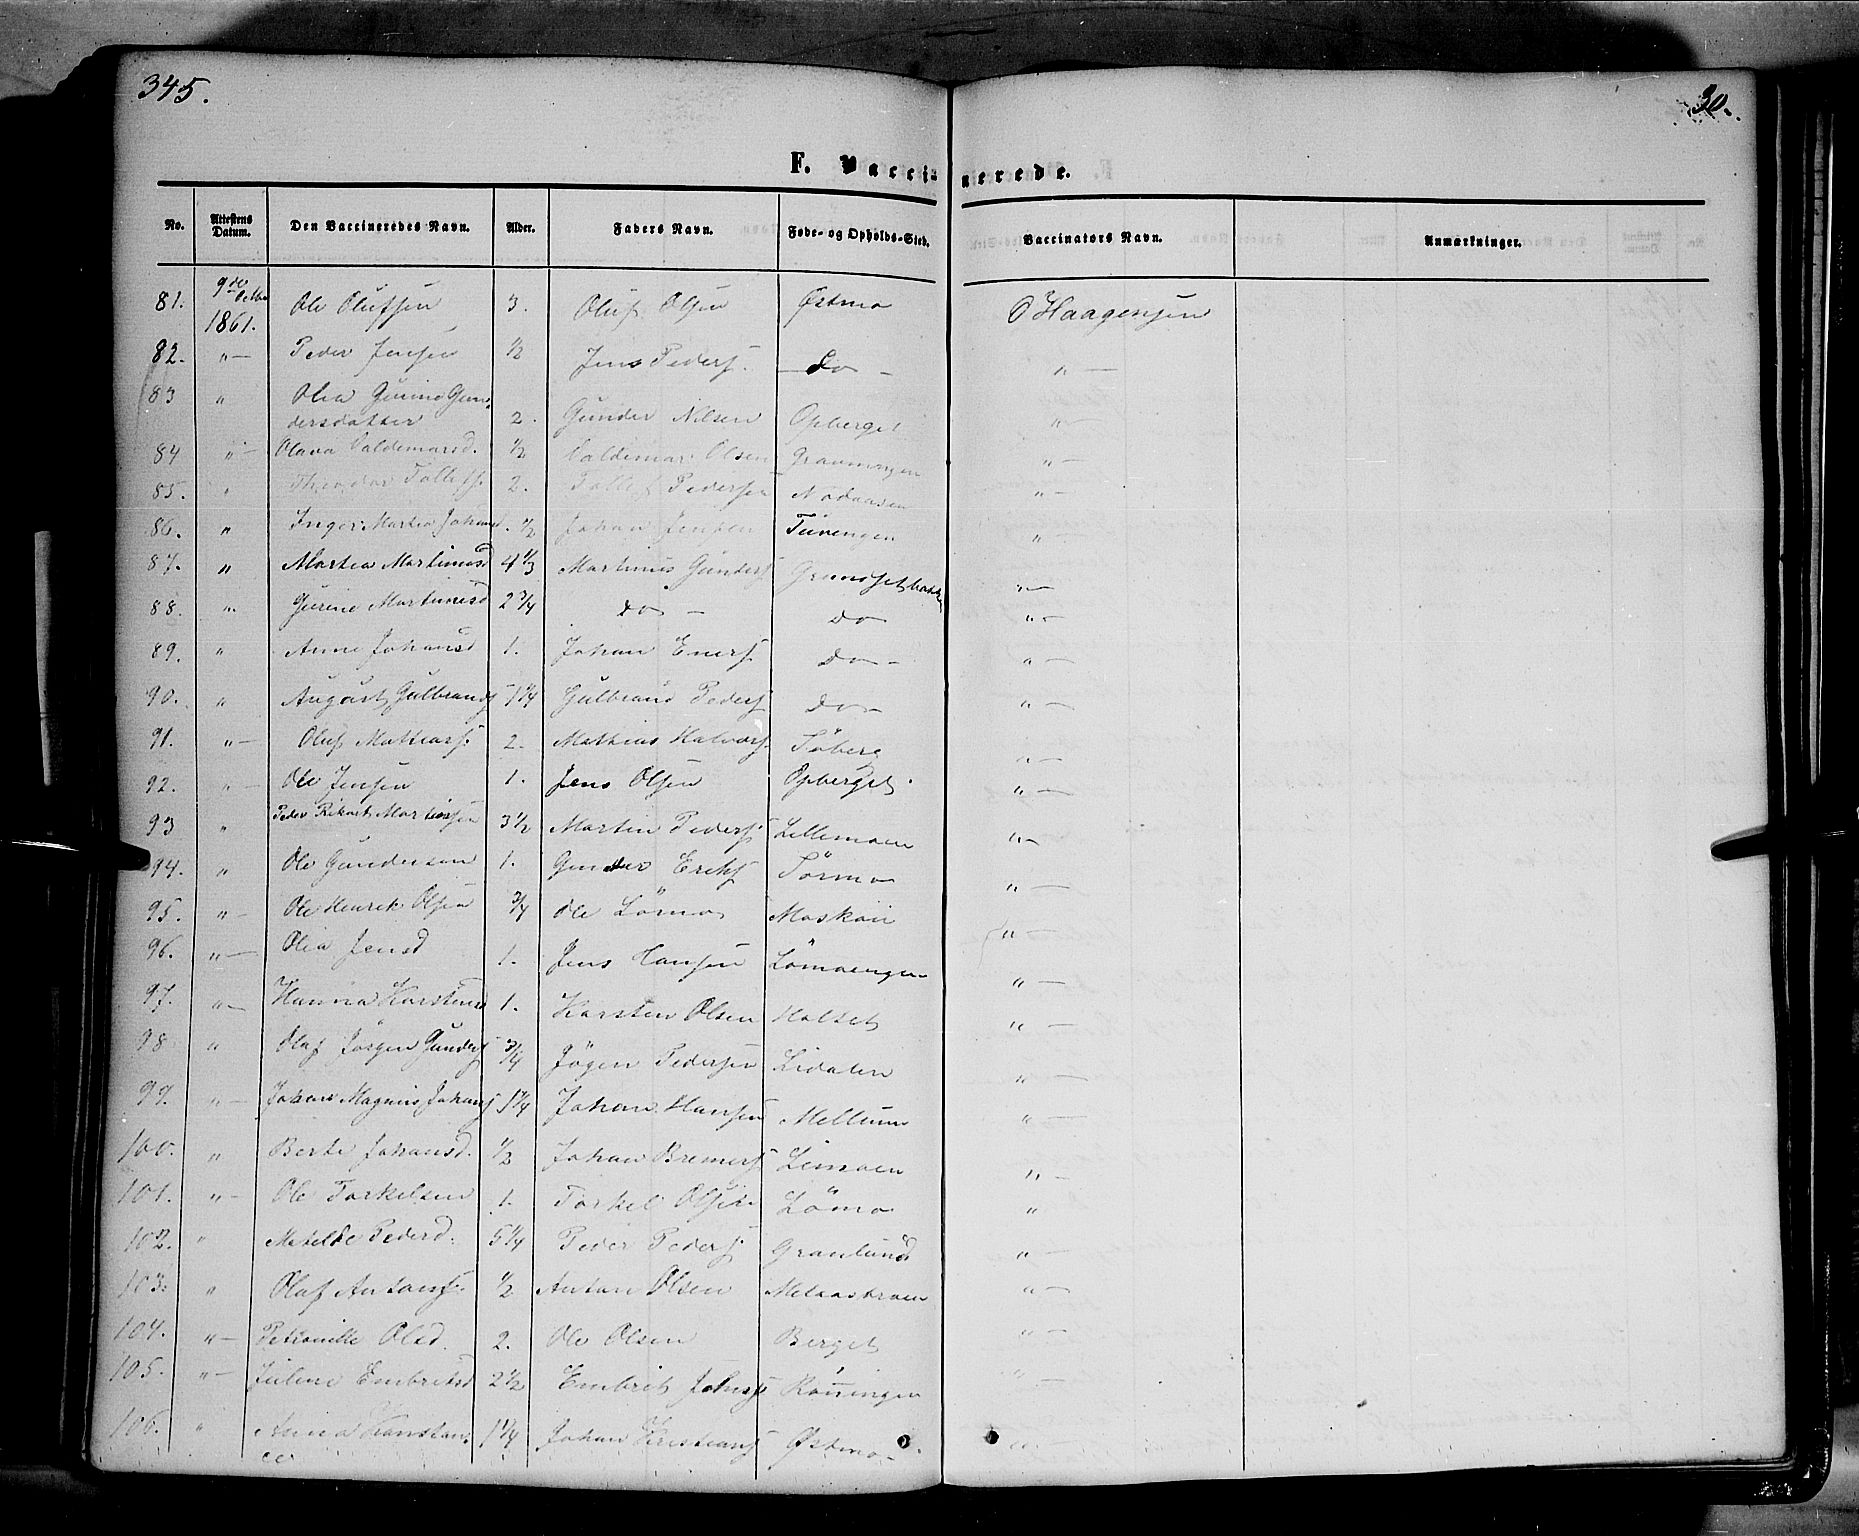 345.
30.
F. Vaccinerede.
No. Attestens Datum. Den Vaccineredes Navn. Alder. Faders Navn. Føde- og Opholds-Sted. Vaccinators Navn. Anmærkninger.
81. 9de Octbr 1861. Ole Olufsen 3. Oluf Olsen Østmo O Haagensen
82. "— Peder Jensen 1/2 Jens Peders. Do — "—
83 " Olea Gurine Gun-
dersdatter 2. Gunder Nilsen Opberget "—
84 "— Olava Valdemarsd. 1/2 Valdemar Olsen Gravningen "—
85. " Theodor Tollefs. 2. Tollef Pedersen "—
86. " Inger Martea Johansd. 1/2 Johan Jensen "—
87. " Martea Martinusd 4 1/3 Martinus Gunders "—
88. " Gurine Martinusd 2 3/4 do — do "—
89. " Anne Johansd 1. Johan Eners do — "—
90. " August Gulbrands 1 1/4 Gulbrand Peders do — "—
91. "— Oluf Mathias. 2. Mathias Halvors. Søberg "—
92. "— Ole Jensen 1. Jens Olsen Opberget. "—
93 " Peder Rikart Martinsen 3 1/2 Martin Peders. Lillemoen "—
94. " Ole Gundersen 1. Gunder Ericks Sörmo "—
95. "— Ole Henrik Olsen 3/4 Ole Lömo "—
96. "— Olia Jensd 1. Jens Hansen Lömoengen "—
97. "— Hanna Karstensd 1. Karsten Olsen Holset "—
98 " Olaf Jörgen Gunders 3/4 Jögen Pedersen Lidalen "—
99. "— Johan Magnus Johans 1 1/4 Johan Hansen Mellum "—
100. " Berte Johansd. 1/2 Johan Bremers Lemoen "—
101. "— Ole Torkelsen 1. Torkel Olsen Lömo "
102. " Matilde Pedersd. 5 1/4 Peder Peders Granlund "—
103. " Olaf Antons. 1/2 Anton Olsen "—
104. "— Petronille Olsd. 2. Ole Olsen Berget "—
105. "— Juline Embretsd 2 1/2 Embret Johns Rönningen "—
106. " Anna Konstan-
ce 1 1/4 Johan Kristians Østmo "—